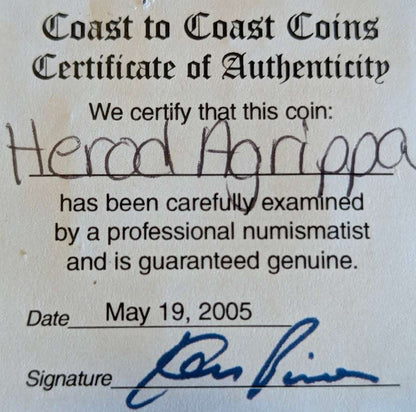 Coast to Coast Coins
Certificate of Authenticity
We certify that this coin:
Herod Agrippa
has been carefully examined
by a professional numismatist
and is guaranteed genuine.
Date May 19, 2005
Signature